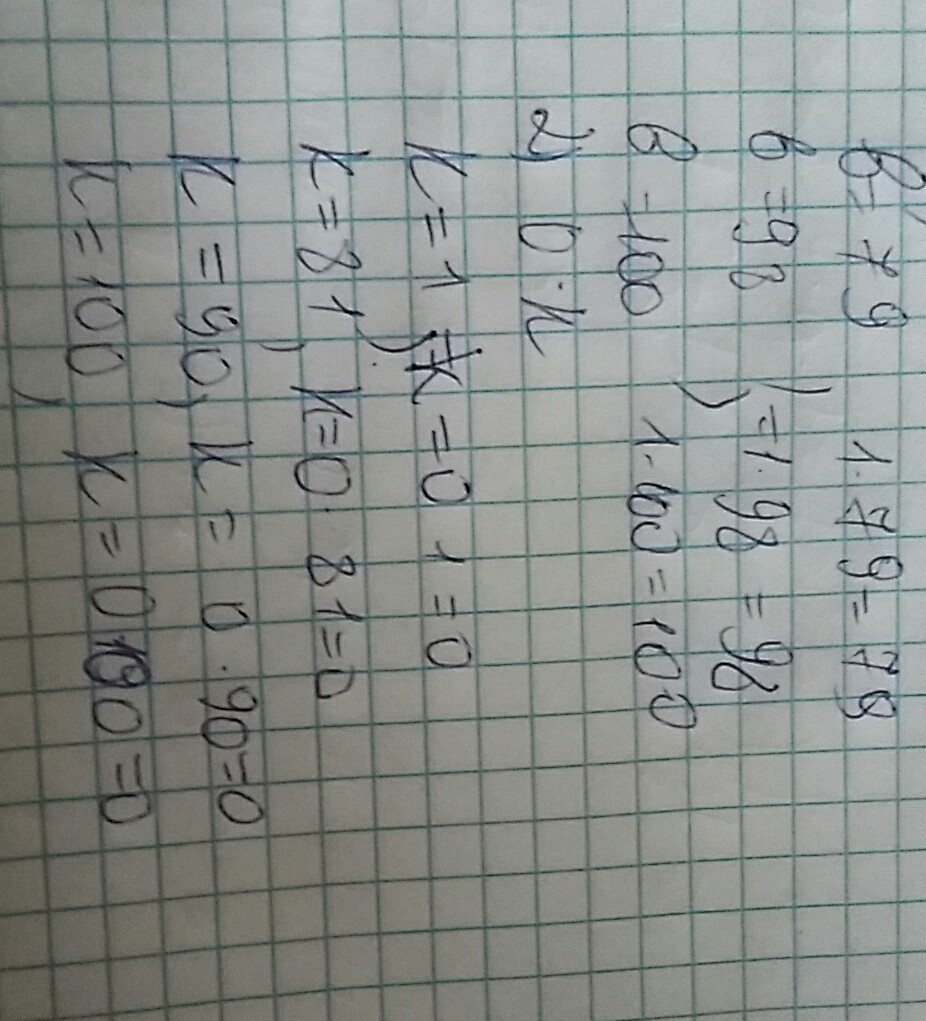 в = 79 1·79=79
в =98, =1·98 =98
в =100, 1·100=100
2) 0·к
к=1, к=0 1=0
к=81, к=0·81=0
к =90, к= 0·90=0
к=100, к=0 100=0